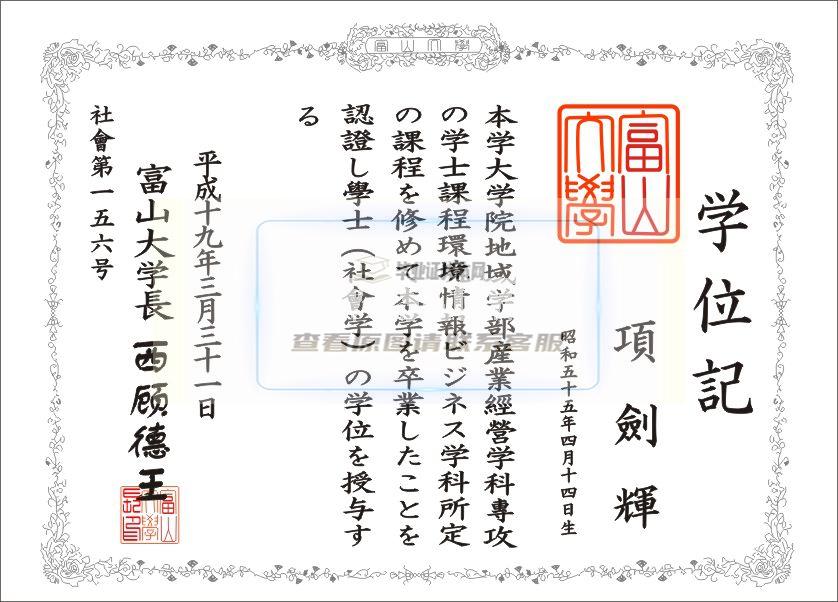 富山大學
学位記
富山大學
項劍輝
昭和五十五年四月十四日生
本学大学院地域学部産業經営学科專攻
の学士課程環境情報ビジネス学科所定
の課程を修めて本学を卒業したことを
認證し學士（社會学）の学位を授与す
る
平成十九年三月三十一日
富山大学長 西顾德王
社會第一五六号
查看原图请联系客服